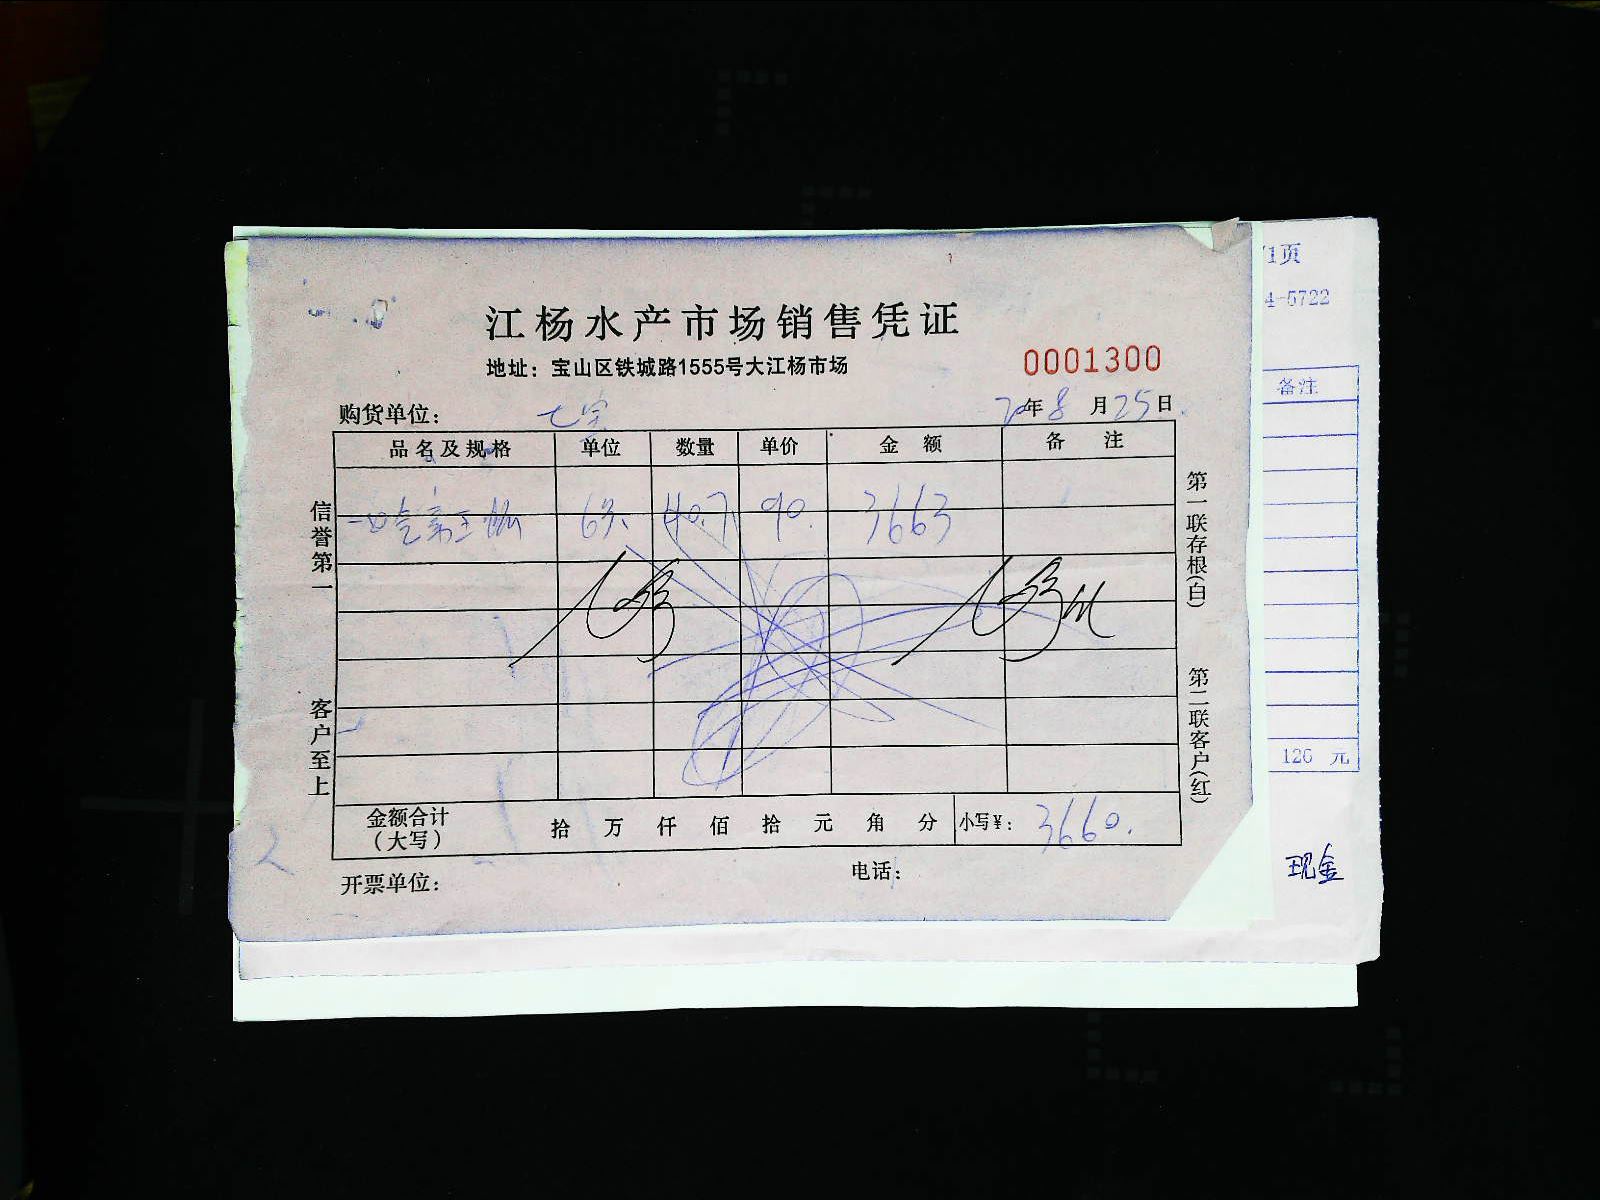 江杨水产市场销售凭证
地址：宝山区铁城路1555号大江杨市场
0001300
购货单位：七宗
20年8月25日
品名及规格 单位 数量 单价 金额 备注
40.7 90. 3663
金额合计（大写） 拾 万 仟 佰 拾 元 角 分 小写¥：3660.
开票单位： 电话：
信誉第一 客户至上
第一联存根(白) 第二联客户(红)
1页
4-5722
备注
126 元
现金